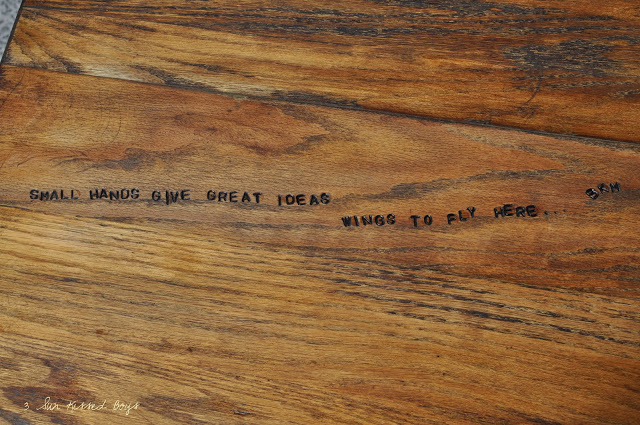 SMALL HANDS GIVE GREAT IDEAS
WINGS TO FLY HERE...
3 Sun Kissed Boys